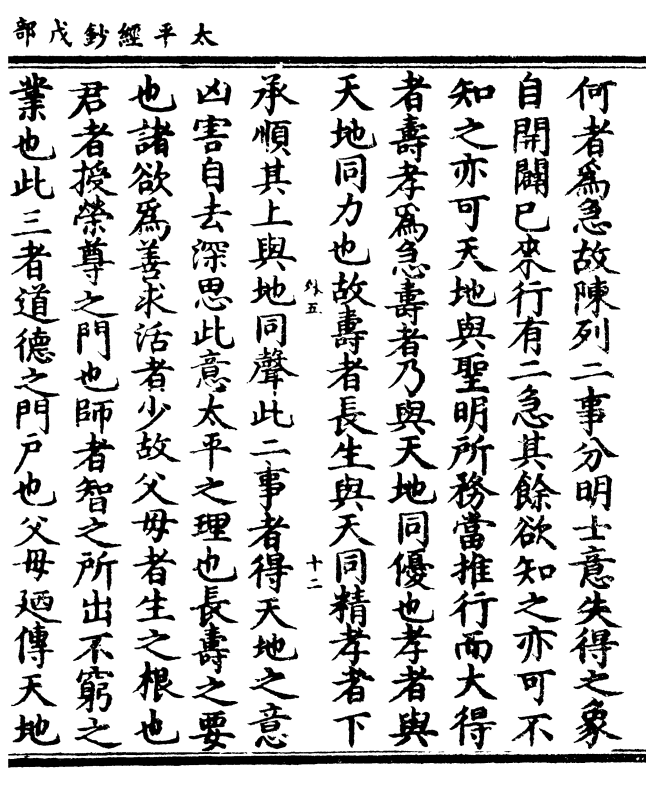 太平經鈔戊部
何者爲急故陳列二事分明士意失得之象
自開闢已來行有二急其餘欲知之亦可不
知之亦可天地與聖明所務當推行而大得
者壽孝爲急壽者乃與天地同優也孝者與
天地同力也故壽者長生與天同精孝者下
外五
十二
承順其上與地同聲此二事者得天地之意
凶害自去深思此意太平之理也長壽之要
也諸欲爲善求活者少故父毋者生之根也
君者授榮尊之門也師者智之所出不窮之
業也此三者道德之門戶也父母廼傳天地